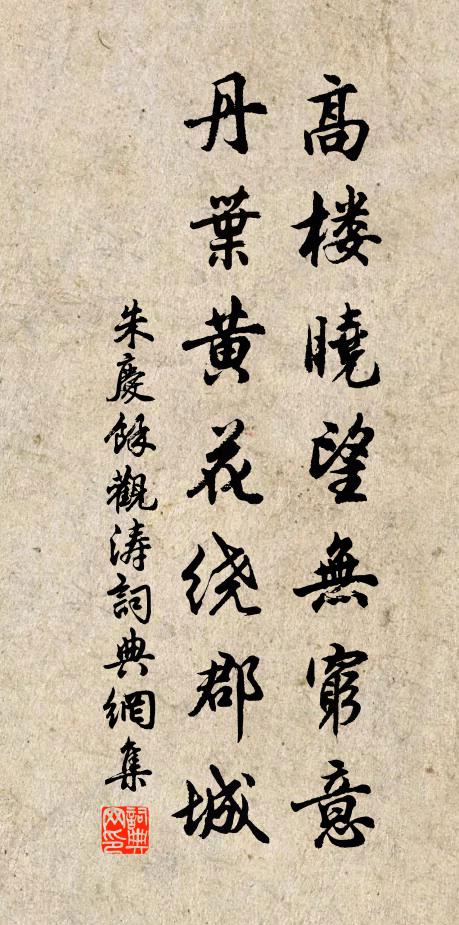 高楼曉望無窮意
丹葉黄花绕郡城
朱慶餘觀涛詞典網集
詞典网印